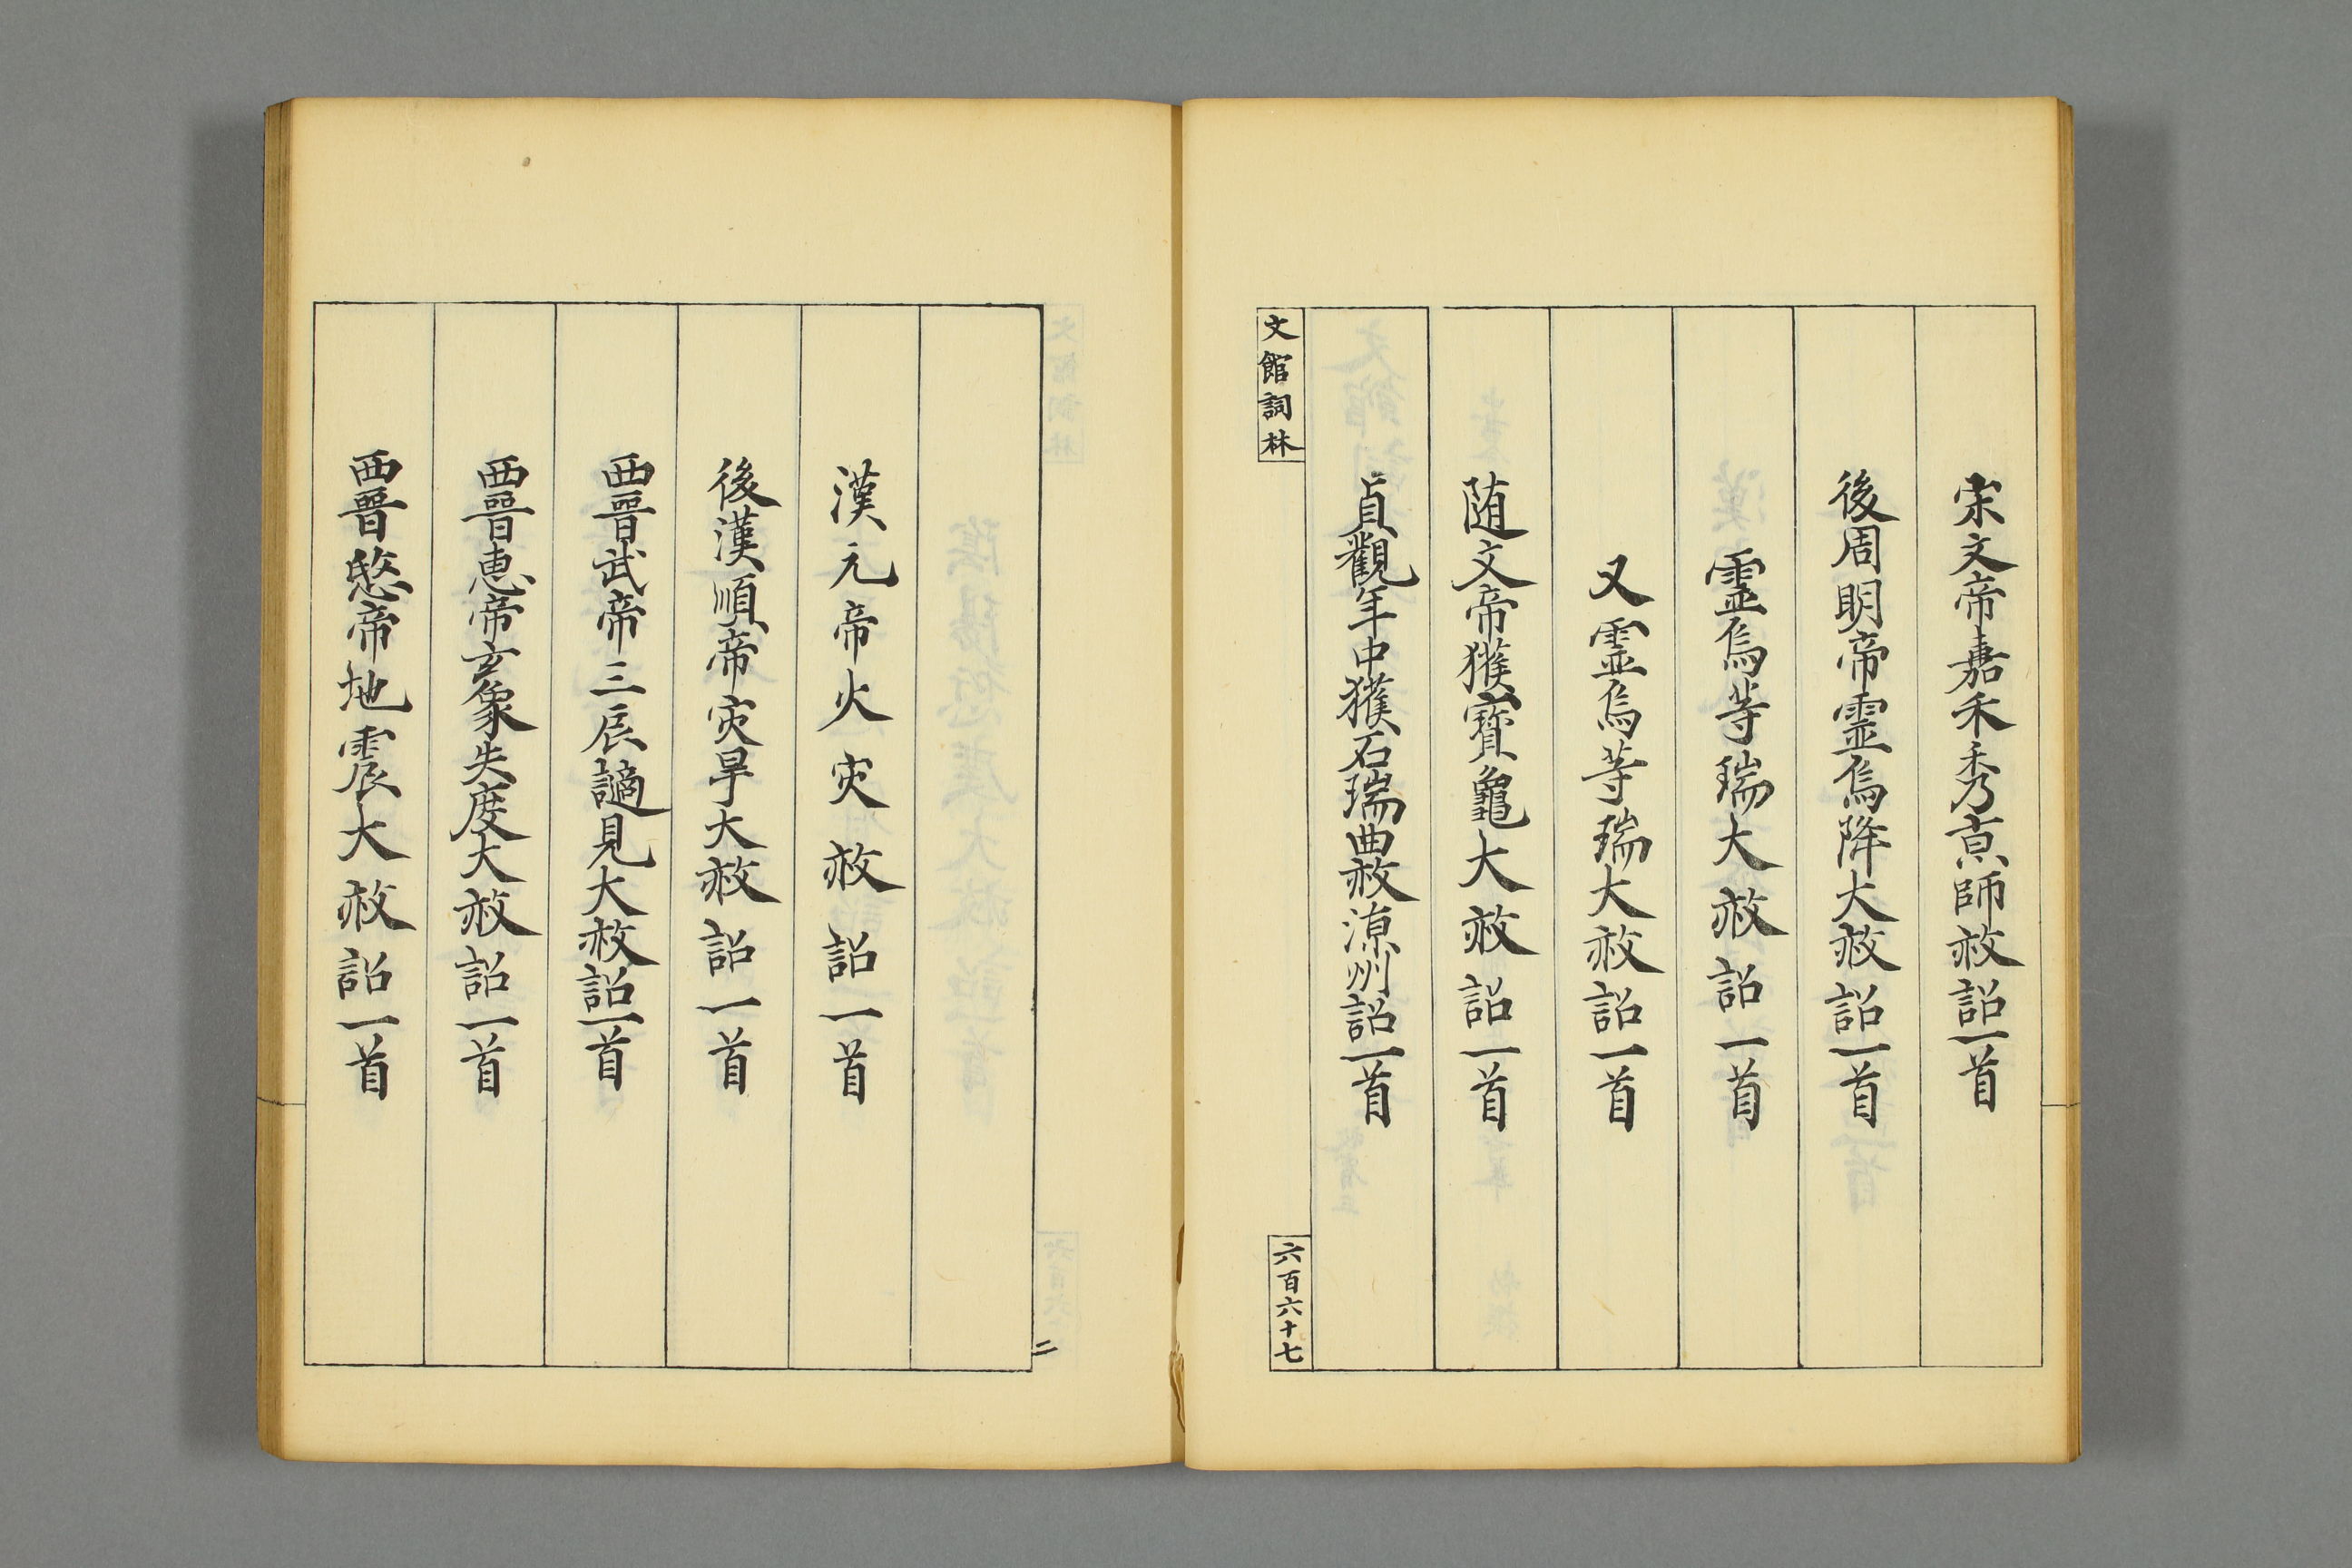 宋文帝嘉禾秀京師赦詔一首
後周明帝霊烏降大赦詔一首
霊烏等瑞大赦詔一首
又霊烏等瑞大赦詔一首
随文帝獲寳龜大赦詔一首
貞觀年中獲石瑞曲赦涼州詔一首
文館詞林
六百六十七
二
漢元帝火灾赦詔一首
後漢順帝灾旱大赦詔一首
西晉武帝三辰謫見大赦詔一首
西晉惠帝玄象失度大赦詔一首
西晉愍帝地震大赦詔一首